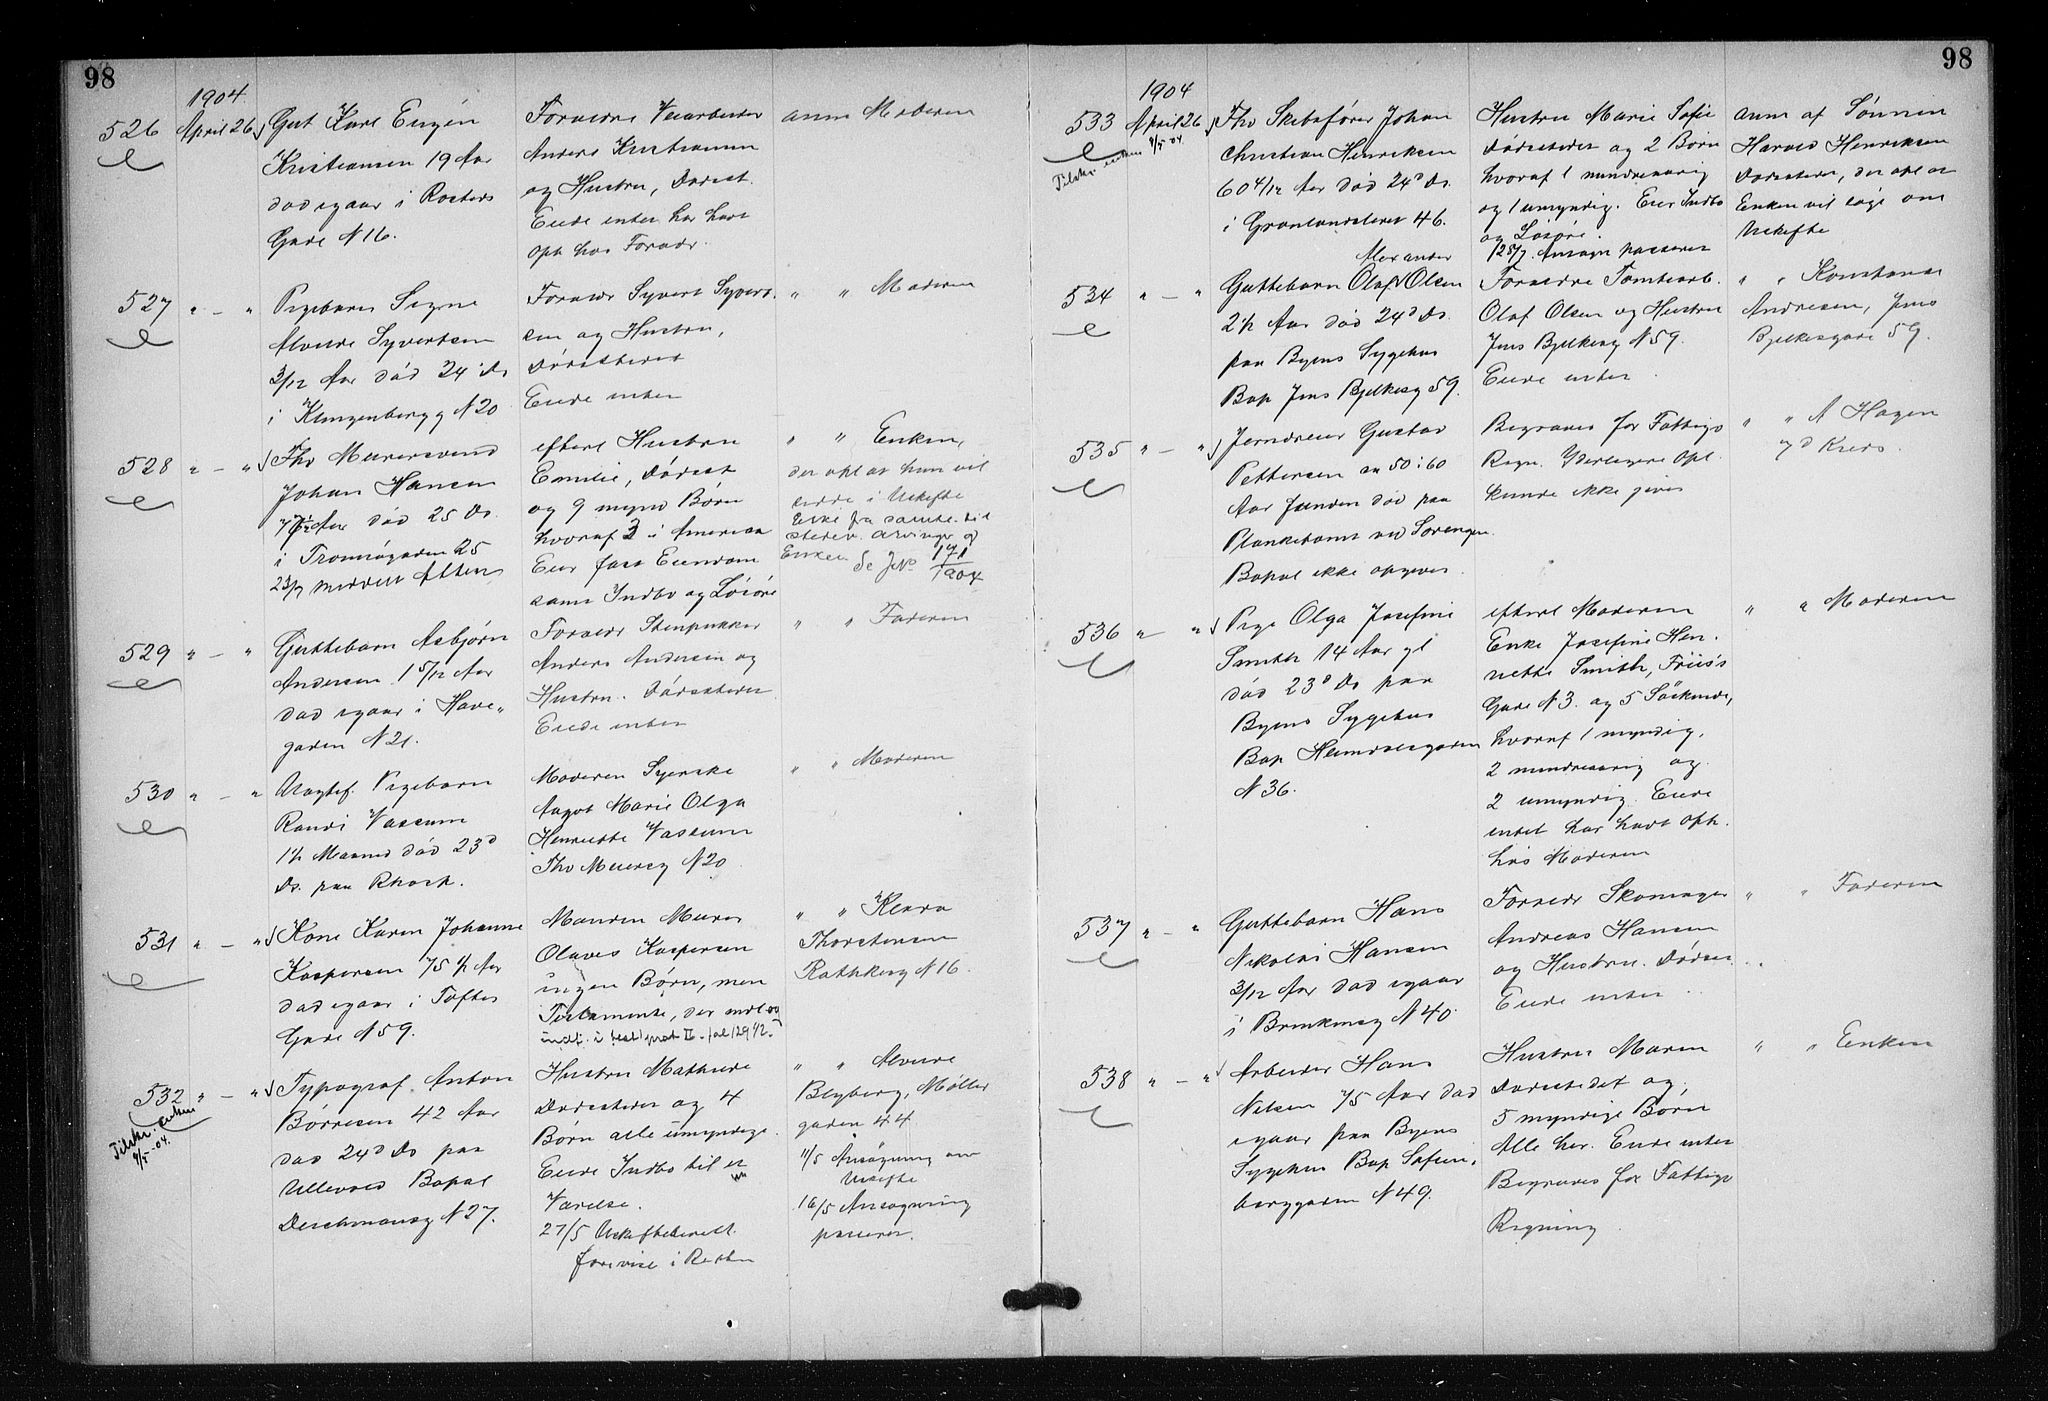 98
1904
526 April 26 Gut Karl Eugen
Kristiansen 19 Aar
død igaar i Rosteds
Gade N 16.
Forældre
Anders Kristiansen
og Hustru, Dødsst.
Eiede intet har havt
oph hos Foræld.
anm Moderen
527 " — " Pigebarn Signe
Alvilde Syvertsen
3/12 Aar død 24 Ds
i Klingenbergg N 20
Forældr Syvert Syvert-
sen og Hustru,
Dødsstedet
Eiede intet
" " Moderen
528 " — " Fhv Murersvend
Johan Hansen
Aar død 25 Ds.
i Tromsøgaden 25
23/7 meddelt Attest
efterl Hustru
Emilie, Dødsst
og 9 mynd Børn
hvoraf 3 i Amerika
Eier fast Eiendom
samt Indbo og Løsøre
" " Enken,
der opl at hun vil
sidde i Uskifte
Enke fra samtl. til
stedev. arvinger og
Enken Se JNo 171/1904
529 " — " Guttebarn Asbjørn
Andersen 1 5/12 Aar
død igaar i Have-
gaden N 21.
Forældr Stenpukker
Anders Andersen og
Hustru. Dødsstedet
Eiede intet
" " Faderen
530 " — " Uægtef. Pigebarn
Randi Vassum
1 1/2 Maaned død 23d
Ds. paa Rhosp.
Moderen Syerske
Aagot Marie Olga
Henriette Vassum
Thv Meyersg N 20
" " Moderen
531 " — " Kone Karen Johanne
Kaspersen 75 1/2 Aar
død igaar i Toftes
Gade N 59.
Manden Murer
Olaves Kaspersen
ingen Børn, men
Testamente, der
indf. i test prot II. fol 129 42.
" " Klara
Thorstensen
Rathkesg N 16.
532 " — " Typograf Anton
Børresen 42 Aar
død 24d Ds paa
Ullevaal Bopæl
Deichmansg N 27.
Tilskr. enken
9/5-04.
Hustru Mathilde
Dødsstedet og 4
Børn alle umyndige.
Eiede Indbo til et
Værelse.
27/5 Uskiftebevill.
forevist i Retten
" " Alvilde
Blyberg, Møller
gaden 44
11/5 Ansøgning om
Uskifte
16/5 Ansøgning
passeret.
98
1904
533 April 26 Fhv Skibsfører Johan
Christian Henriksen
60 4/12 Aar død 24d Ds.
i Grønlandsleret 46.
Tilskr. enken 9/5 04.
Hustru Marie Sofie
Dødsstedet og 2 Børn
hvoraf 1 mindreaarig
og 1 umyndig. Eier Indbo
og Løsøre.
Ansøgn passeret
anm af Sønnen
Harald Henriksen
Dødsstedet, der opl at
Enken vil søge om
Uskifte
534 " — " Guttebarn Olaf Alexander Olsen
2 1/2 Aar død 24d Ds.
paa Byens Sygehus
Bop Jens Bjelkesg 59.
Forældre Tomtearb.
Olaf Olsen og Hustru
Jens Bjelkesg N 59.
Eiede intet
" " Konstance
Andresen, Jens
Bjelkesgade 59.
535 " — " Jerndreier Gustav
Pettersen ca 50 i 60
Aar funden død paa
Planketomt ved Sørengen.
Bopæl ikke opgivet
Begraves for Fattigv
Regn. Yderligere opl.
kunde ikke gives
" " A Hagen
7d Kreds.
536 " — " Pige Olga Josefine
Smith 14 Aar gl
død 23d Ds paa
Byens Sygehus
Bop Heimdalsgaden
N 36.
efterl Moderen
Enke Josefine Hen-
riette Smith, Friis's
Gade N 3. og 5 Søskende,
hvoraf 1 myndig,
2 mindreaarig og
2 umyndig. Eiede
intet har havt oph.
hos Moderen
" " Moderen
537 " — " Guttebarn Hans
Nikolai Hansen
3/12 Aar død igaar
i Brinkensg N 40.
Forældr Skomager
Andreas Hansen
og Hustru. Dødsst.
Eiede intet
" " Faderen
538 " — " Arbeider Hans
Nilsen 75 Aar død
igaar paa Byens
Sygehus Bop Sofien-
berggaden N 49.
Hustru Maren
Dødsstedet og
5 myndige Børn
Alle her. Eiede intet
Begraves for Fattigv
Regning
" " Enken